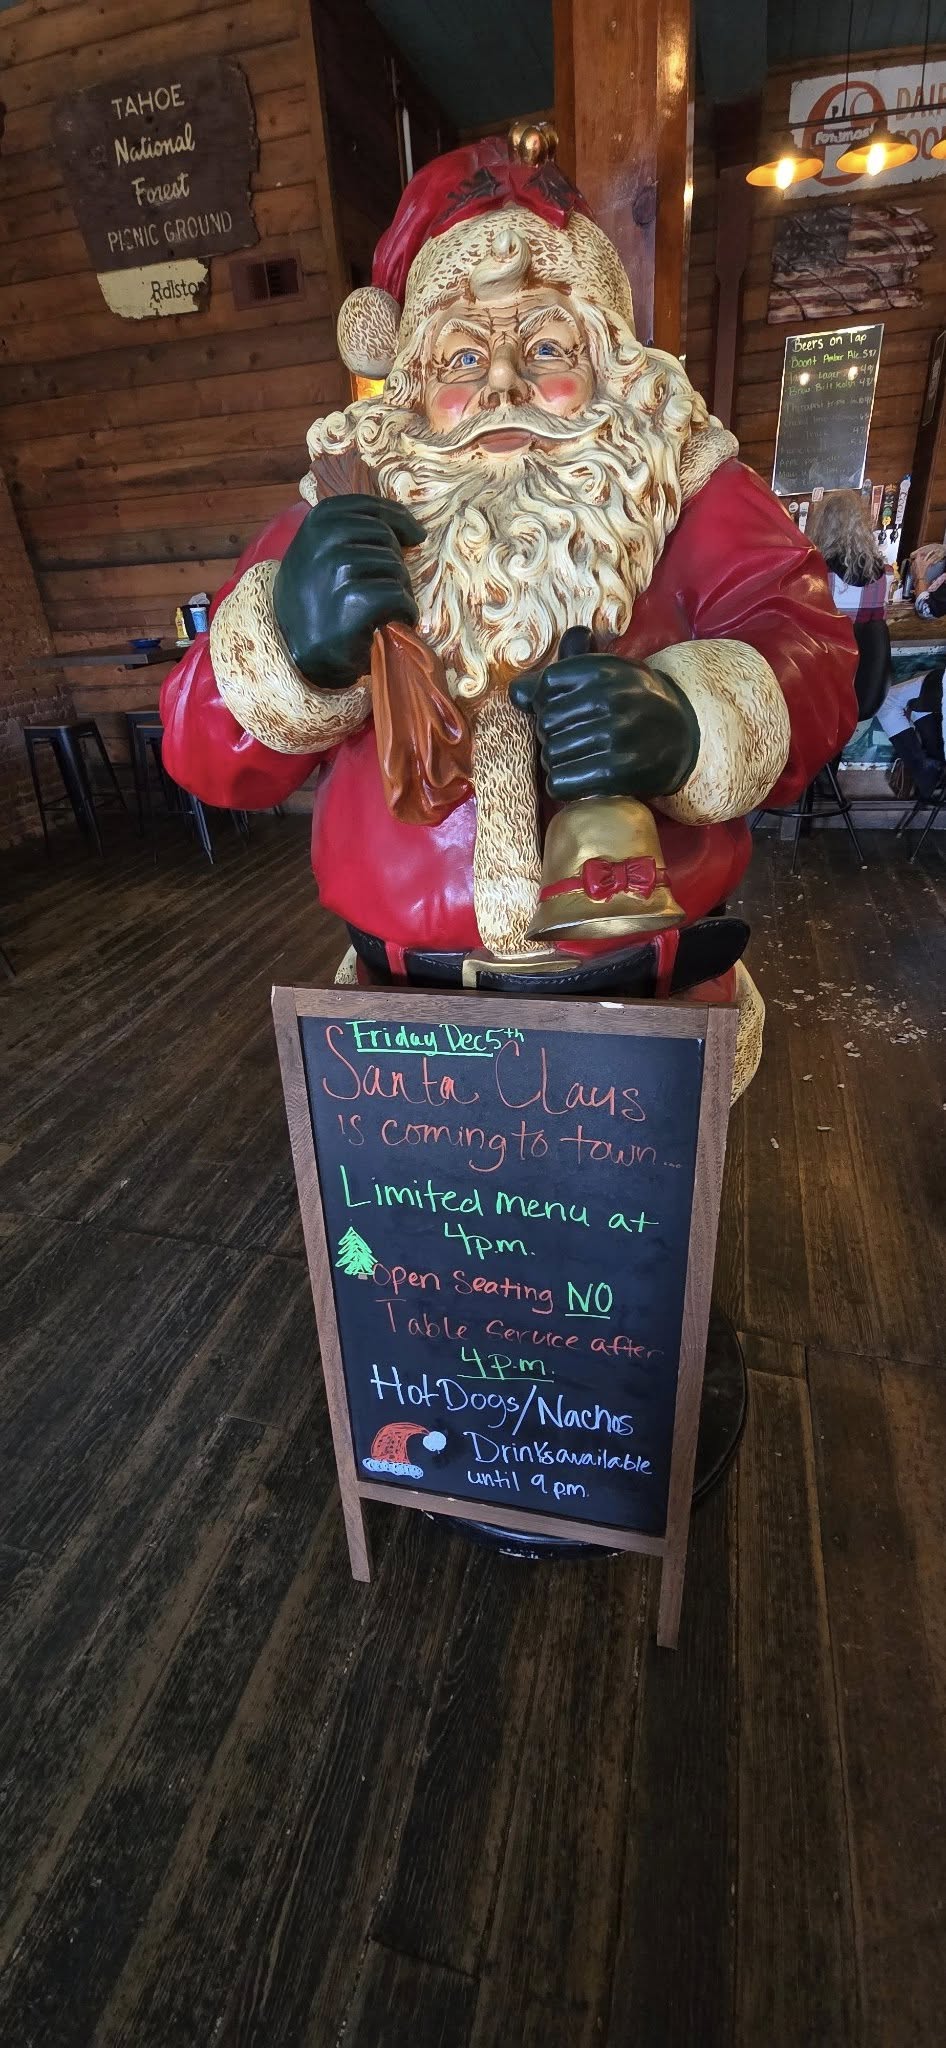 TAHOE
National
Forest
PICNIC GROUND
Ralston
Foremost
DAI
Beers on Tap
Boont Amber Ale
Friday Dec 5th
Santa Claus
is coming to town...
Limited menu at
4p.m.
Open Seating NO
Table Service after
4p.m.
Hot Dogs/Nachos
Drinks available
until 9 p.m.